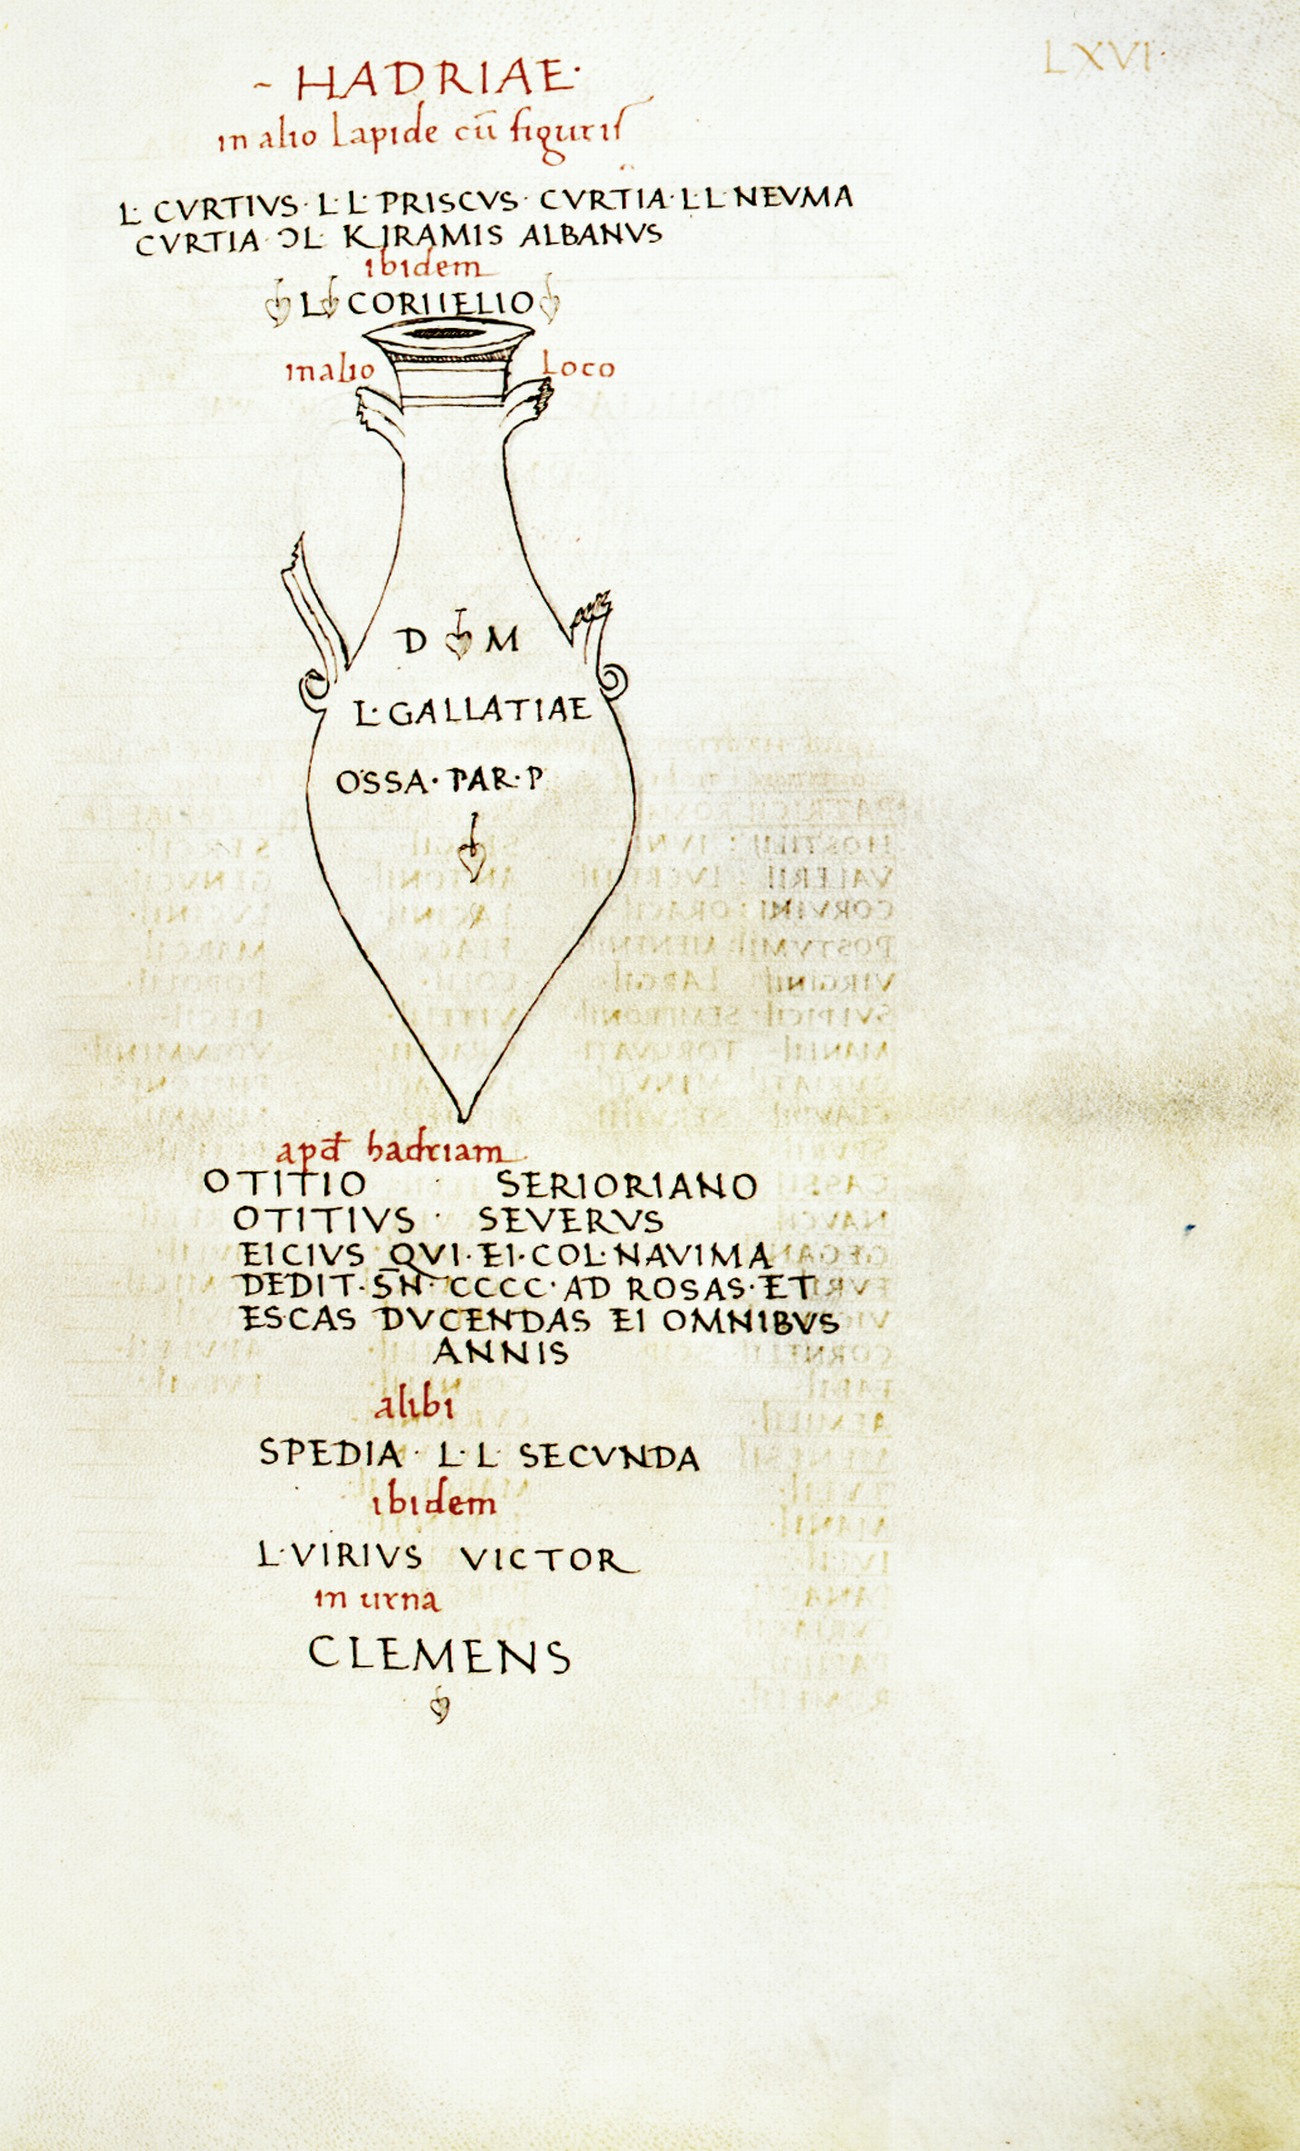 LXVI·
~ HADRIAE·
in alio lapide cū figuris
L· CVRTIVS· L· L· PRISCVS· CVRTIA· L· L· NEVMA
CVRTIA· ƆL· KIRAMIS ALBANVS
ibidem
L CORIIELIO
in alio Loco
D M
L· GALLATIAE
OSSA· PAR· P
apđ hadriam
OTITIO · SERIORIANO
OTITIVS · SEVERVS
EICIVS QVI· EI· COL· NAVIMA
DEDIT· S̄N̄· CCCC· AD ROSAS· ET
ESCAS DVCENDAS EI OMNIBVS
ANNIS
alibi
SPEDIA· L· L· SECVNDA
ibidem
L· VIRIVS VICTOR
in urna
CLEMENS